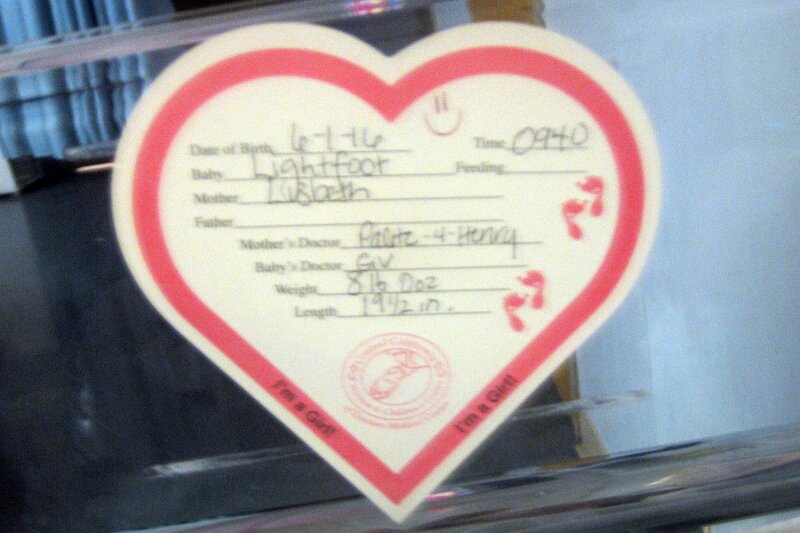 Date of Birth 6-1-16 Time 0940
Baby Lightfoot Feeding
Mother Lisbeth
Father
Mother's Doctor -4-Henry
Baby's Doctor GV
Weight 8 lb 0oz
Length 19 1/2 in.
I'm a Girl!
I'm a Girl!